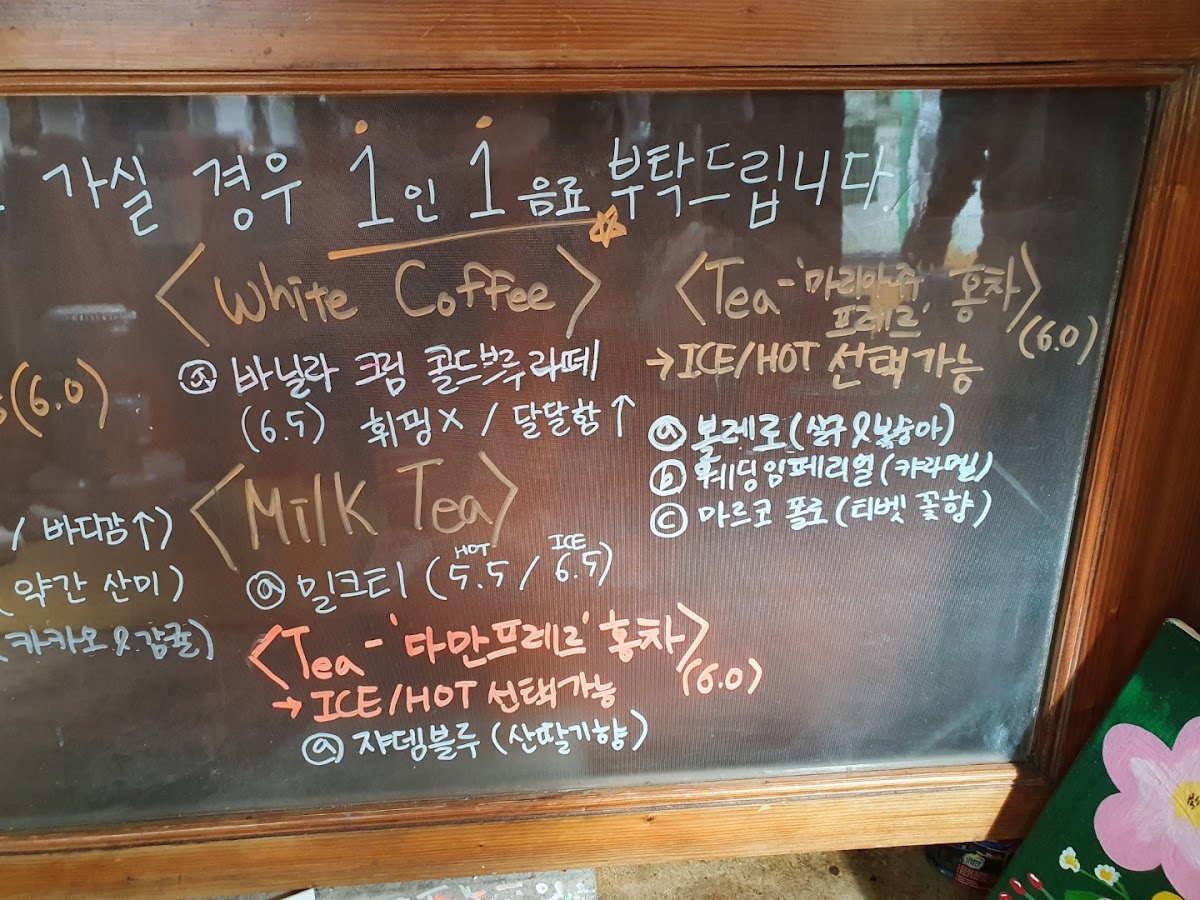 가실 경우 1인 1음료 부탁드립니다.
(6.0)
/ 바디감↑)
(약간 산미)
(카카오&감귤)
<White Coffee>
ⓐ 바닐라 크림 콜드브루라떼
(6.5) 휘핑X / 달달함↑
<Milk Tea>
ⓐ 밀크티 (HOT 5.5 / ICE 6.5)
<Tea-'다만프레르' 홍차>
(6.0)
→ICE/HOT 선택가능
ⓐ 쟈뎀블루 (산딸기향)
<Tea-'마리아쥬
프레르' 홍차>
(6.0)
→ICE/HOT 선택가능
ⓐ 볼레로 (살구&복숭아)
ⓑ 웨딩임페리얼 (캬라멜)
ⓒ 마르코 폴로 (티벳 꽃향)